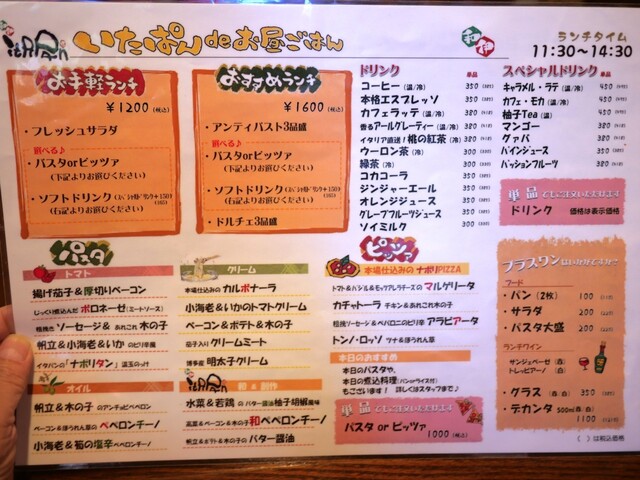 いたぱん deお昼ごはん
和
伊
ランチタイム
11:30〜14:30
お手軽ランチ
￥1200(税込)
・フレッシュサラダ
選べる♪
・パスタorピッツァ
(下記よりお選びください)
・ソフトドリンク
(右記よりお選びください)
おすすめランチ
￥1600(税込)
・アンティパスト3品盛
選べる♪
・パスタorピッツァ
(下記よりお選びください)
・ソフトドリンク
(右記よりお選びください)
・ドルチェ3品盛
ドリンク 単品
コーヒー(温/冷) 350
本格エスプレッソ 350
カフェラッテ(温/冷) 380
香るアールグレーティー(温/冷) 380
イタリア直送!桃の紅茶(冷) 380
ウーロン茶(冷) 300
緑茶(冷) 300
コカコーラ 350
ジンジャーエール 350
オレンジジュース 350
グレープフルーツジュース 350
ソイミルク 300
スペシャルドリンク 単品
キャラメル・ラテ(温/冷) 450
カフェ・モカ(温/冷) 450
柚子Tea(温) 450
マンゴー 380
グァバ 380
パインジュース 380
パッションフルーツ 380
単品でもご注文いただけます
ドリンク 価格は表示価格
パスタ
トマト
揚げ茄子&厚切りベーコン
じっくり煮込んだ ボロネーゼ(ミートソース)
粗挽き ソーセージ& あれこれ 木の子
帆立&小海老&いか のピリ辛風
イタパンの「ナポリタン」 温玉のっけ
オイル
帆立&木の子 のアンチョビペペロン
ベーコン&ほうれん草の ペペロンチーノ
小海老&筍の塩辛ペペロンチーノ
クリーム
本場仕込みの カルボナーラ
小海老&いかのトマトクリーム
ベーコン&ポテト&木の子
茄子入り クリームミート
博多産 明太子クリーム
和 & 創作
水菜&若鶏 のバター醤油柚子胡椒風味
高菜&ベーコン&木の子の 和ペペロンチーノ
帆立&ポテト&木の子の バター醤油
ピッツァ
本場仕込みの ナポリPIZZA
トマト&バジル&モッツアレラチーズの マルゲリータ
カチャトーラ チキン&あれこれ木の子
粗挽ソーセージ&ペパロニのピリ辛 アラビアータ
トンノ・ロッソ ツナ&ほうれん草
本日のおすすめ
本日のパスタや、
本日の煮込料理(パンorライス付)
もございます! 詳しくはスタッフまで♪
単品でもご注文いただけます
パスタ or ピッツァ
1000(税込)
プラスワン はいかがですか?
フード
・パン(2枚) 100
・サラダ 200
・パスタ大盛 200
ランチワイン
サンジョベーゼ(赤)
トレッビアーノ(白)
・グラス(赤/白) 350
・デカンタ 500ml(赤/白)
1100
( )は税込価格